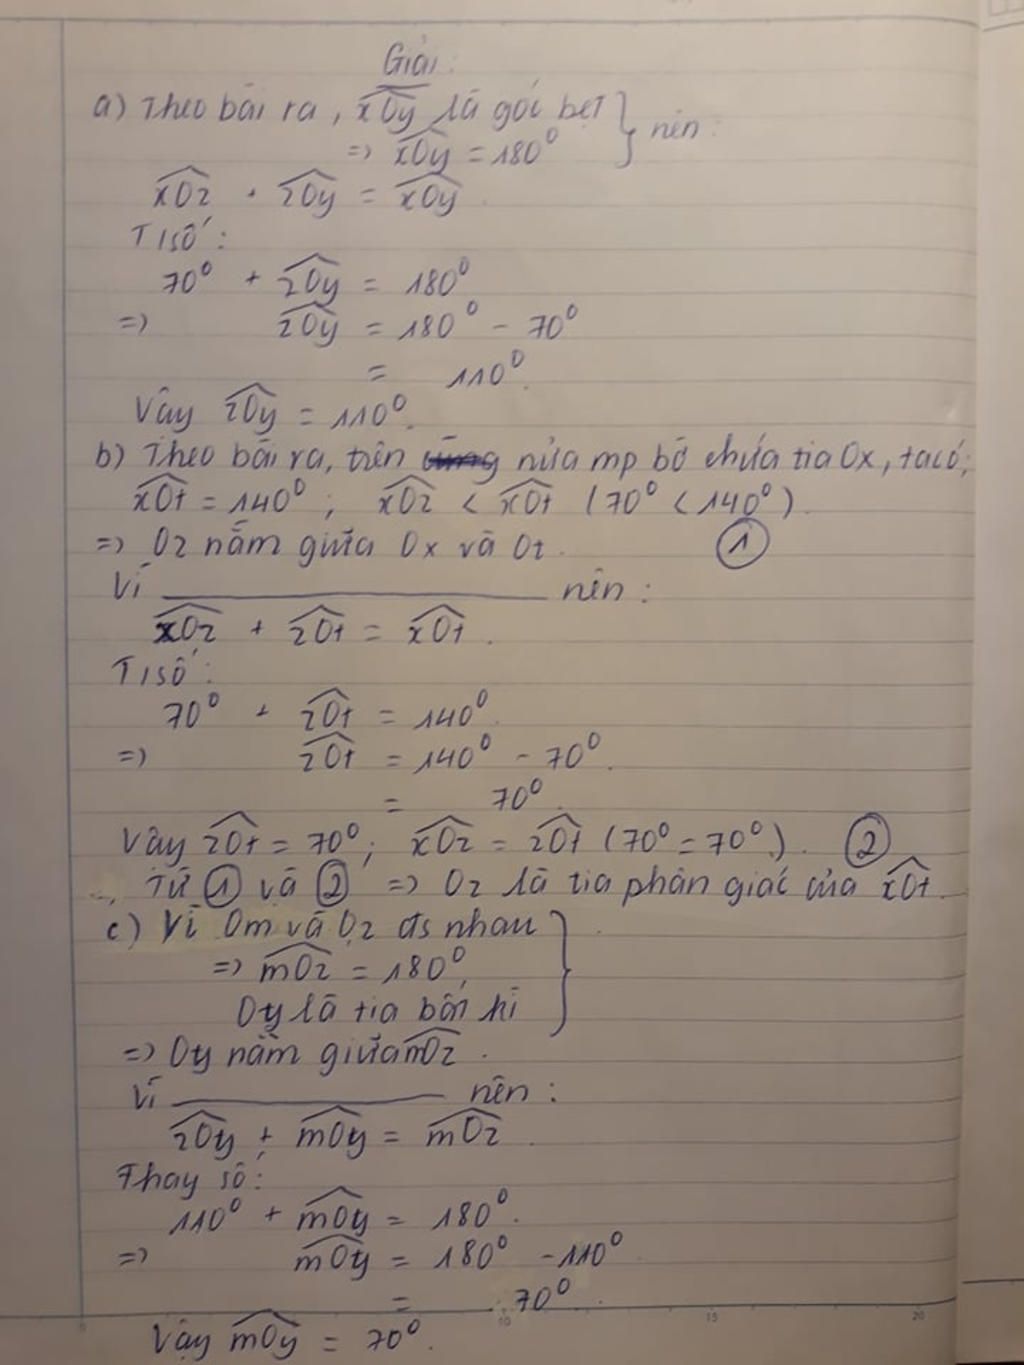 Giải:
a) Theo bài ra, xOy là góc bẹt } nên:
=> xOy = 180⁰
xOz + zOy = xOy
T/số:
70⁰ + zOy = 180⁰
=> zOy = 180⁰ - 70⁰
= 110⁰.
Vậy zOy = 110⁰.
b) Theo bài ra, trên nửa mp bờ chứa tia Ox, ta có:
xOt = 140⁰; xOz < xOt (70⁰ < 140⁰).
=> Oz nằm giữa Ox và Ot. ①
Vì ________ nên:
xOz + zOt = xOt.
T/số:
70⁰ + zOt = 140⁰.
=> zOt = 140⁰ - 70⁰.
= 70⁰.
Vậy zOt = 70⁰; xOz = zOt (70⁰ = 70⁰). ②
Từ ① và ② => Oz là tia phân giác của xOt.
c) Vì Om và Oz đs nhau }
=> mOz = 180⁰,
Oy là tia bất kì
=> Oy nằm giữa mOz.
Vì ________ nên:
zOy + mOy = mOz.
Thay số:
110⁰ + mOy = 180⁰.
=> mOy = 180⁰ - 110⁰
= 70⁰.
Vậy mOy = 70⁰.
10 15 20